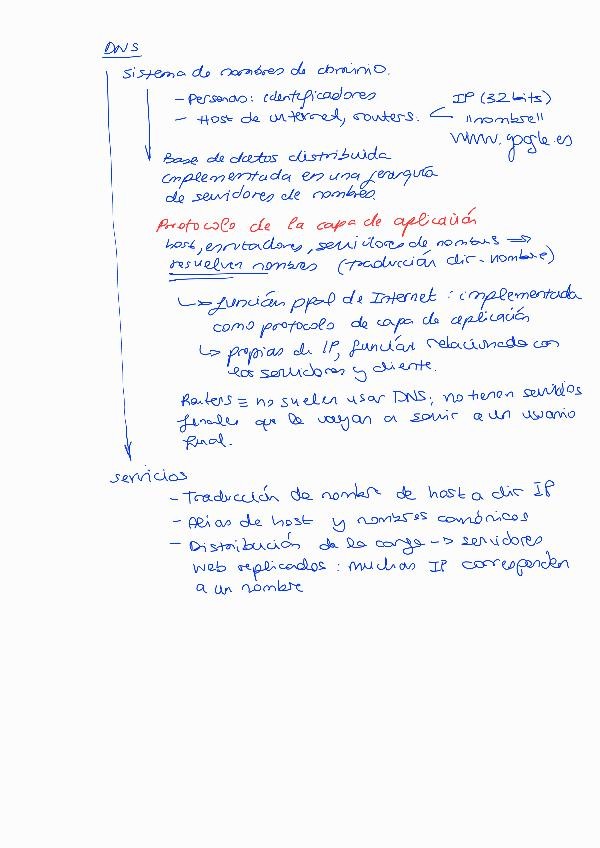 DNS
Sistema de nombres de dominio.
- Personas: identificadores
IP (32 bits)
- Host de internet, routers.
"nombre"
www.google.es
Base de datos distribuida
implementada en una jerarquía
de servidores de nombres.
Protocolo de la capa de aplicación
host, enrutadores, servidores de nombres ⇒
resuelven nombres (traducción dir - nombre)
↳ función ppal de Internet : implementada
como protocolo de capa de aplicación
↳ propias de IP, función relacionada con
los servidores y cliente.
Routers ≡ no suelen usar DNS, no tienen servicios
finales que le vayan a servir a un usuario
final.
servicios
- Traducción de nombre de host a dir IP
- Alias de host y nombres canónicos
- Distribución de la carga → servidores
web replicados : muchas IP corresponden
a un nombre